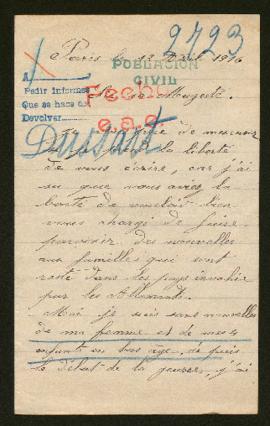 2723
Paris le 12 1916
POBLACIÓN
CIVIL
A
Pedir informes
Que se haga
Devolver
Fecho
Sa Majesté.
e.a.c
Dussart
la liberté
de vous écrire, car j'ai
su que vous aviez la
bonté de vouloir bien
vous chargé de faire
parvenir des nouvelles
aux familles qui sont
resté dans les pays invahie
par les Allemands.
Moi je suis sans nouvelles
de ma femme et de mes 4
enfants en bas âge, depuis
le début de la guerre, j'ai